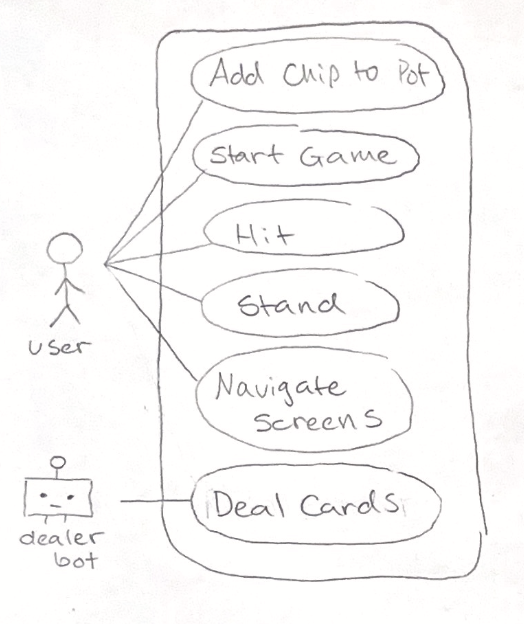 Add Chip to Pot
Start Game
Hit
Stand
user
Navigate
Screens
Deal Cards
dealer
bot